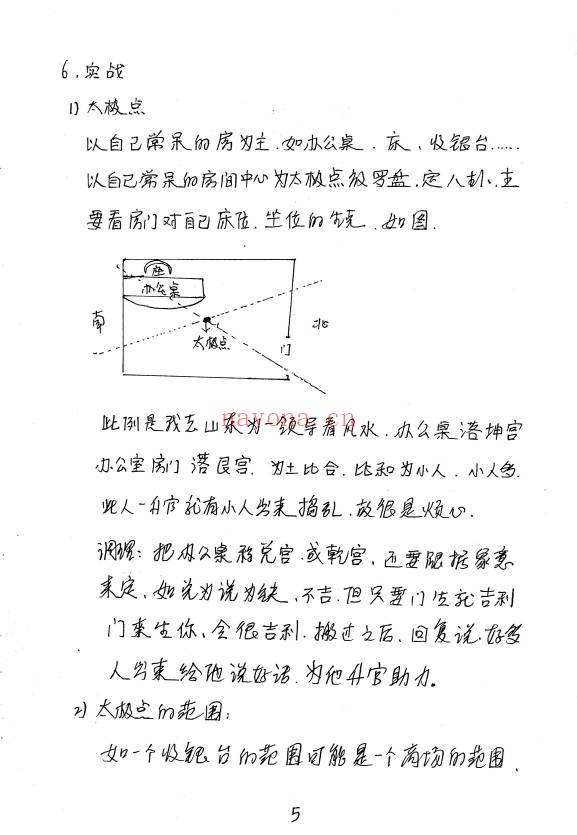 6、实战
1) 太极点
以自己常呆的房为主.如办公桌、床、收银台……
以自己常呆的房间中心为太极点放罗盘.定八卦、主
要看房门对自己床位.坐位的生克.如图.
座
办公桌
南
北
太极点
门
nayona.cn
此例是我去山东为一领导看风水.办公桌落坤宫
办公室房门落艮宫.为土比合.比和为小人.小人多.
此人一升官就有小人出来捣乱.故很是烦心.
调理:把办公桌移兑宫.或乾宫,还要跟据象意
来定,如兑为说为缺,不吉.但只要门生就吉利
门来生你,会很吉利.搬过之后.回复说.好多
人出来给他说好话.为他升官助力。
2) 太极点的范围:
如一个收银台的范围可能是一个商场的范围.
5